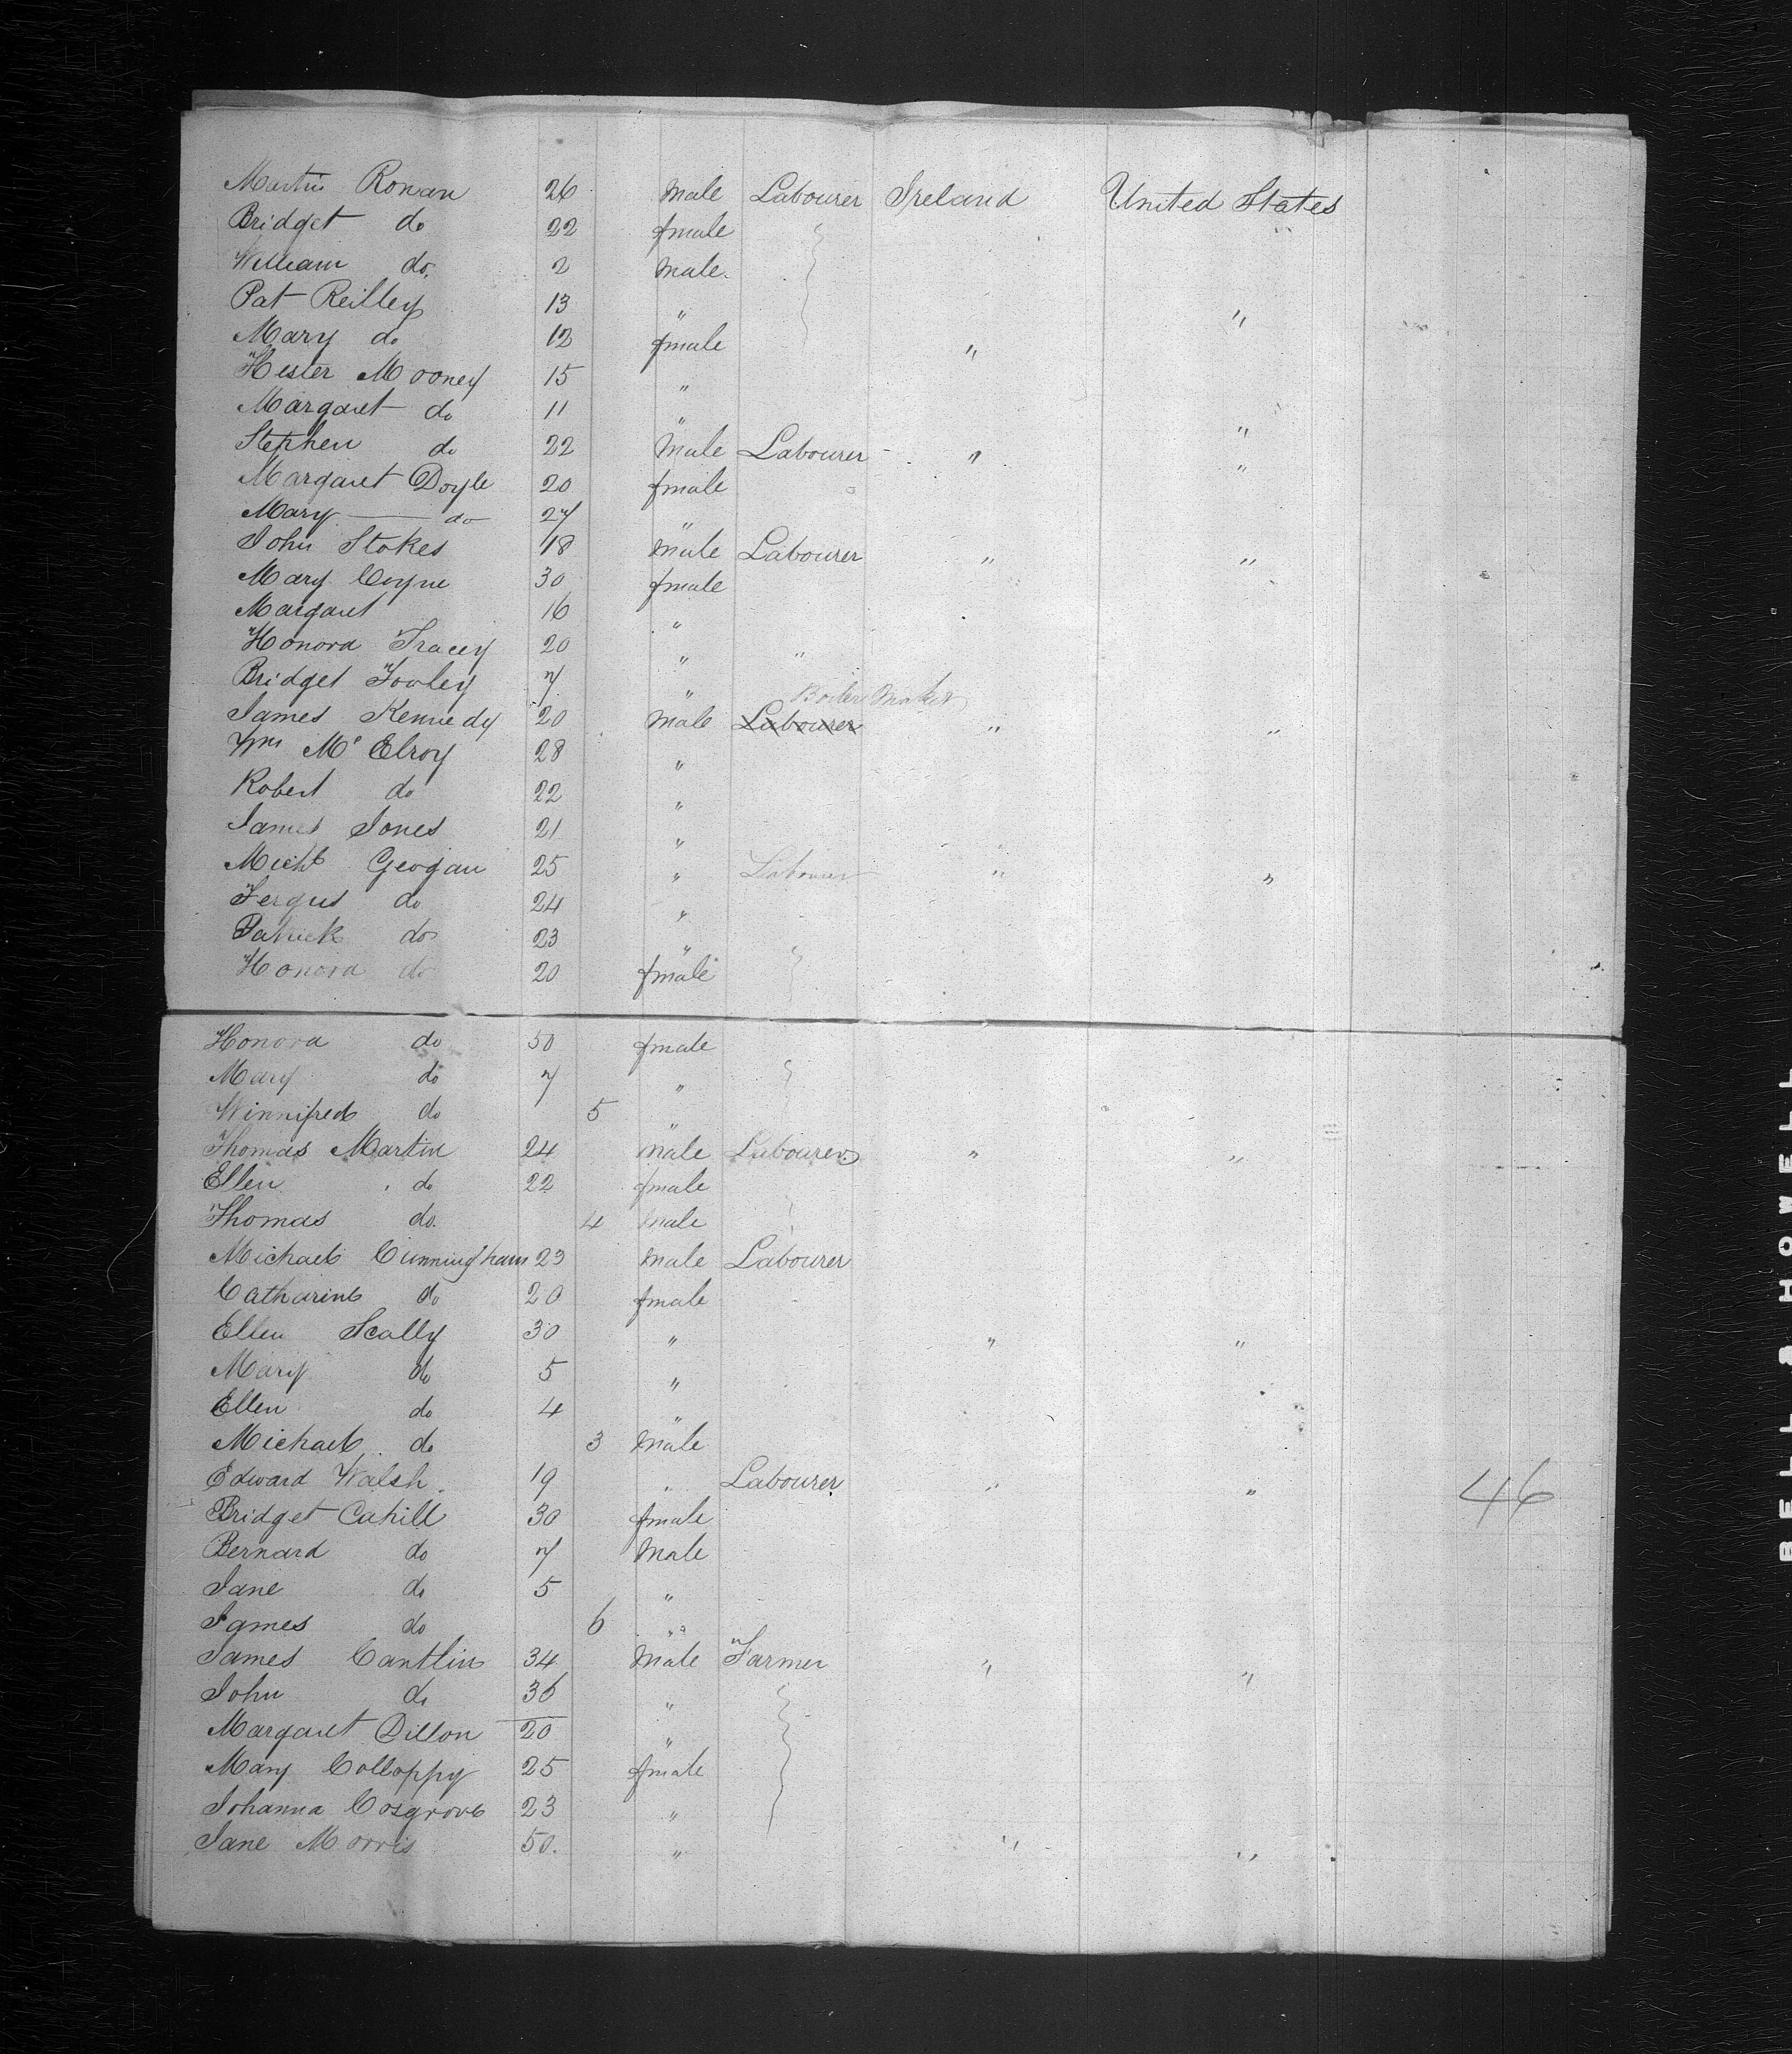 Martin Ronan 26 Male Labourer Ireland United States
Bridget do 22 fmale "
William do. 2 Male.
Pat Reilley 13 " "
Mary do 12 fmale "
Hester Mooney 15 "
Margaret do 11 " "
Stephen do 22 Male Labourer " "
Margaret Doyle 20 fmale
Mary do 27 "
John Stokes 18 Male Labourer " "
Mary Coyne 30 fmale
Margaret 16 "
Honora Tracey 20 " "
Bridget 7 "
Boiler Maker
James Kennedy 20 Male Labourer " "
Wm Mc Elroy 28 "
Robert do 22 "
James Jones 21 "
Michl Geogan 25 " Labourer " "
Fergus do 24 "
Patrick do 23 "
Honora do 20 fmale
Honora do 50 fmale
Mary do 7 "
Winnifred do 5 "
Thomas Martin 24 Male Labourer " "
Ellen do 22 fmale
Thomas do. 4 Male
Michael Cunningham 23 Male Labourer
Catharine do 20 fmale
Ellen Scally 30 " " "
Mary do 5 "
Ellen do 4 "
Michael do 3 Male
Edward Walsh 19 " Labourer " "
46
Bridget Cahill 30 fmale
Bernard do 7 Male
Jane do 5 "
James do 6 "
James Cantlin 34 Male Farmer " "
John do 36 "
Margaret Dillon 20 "
Mary Colloppy 25 fmale
Johanna Cosgrove 23 "
Jane Morris 50. " " "
BELL & HOWELL